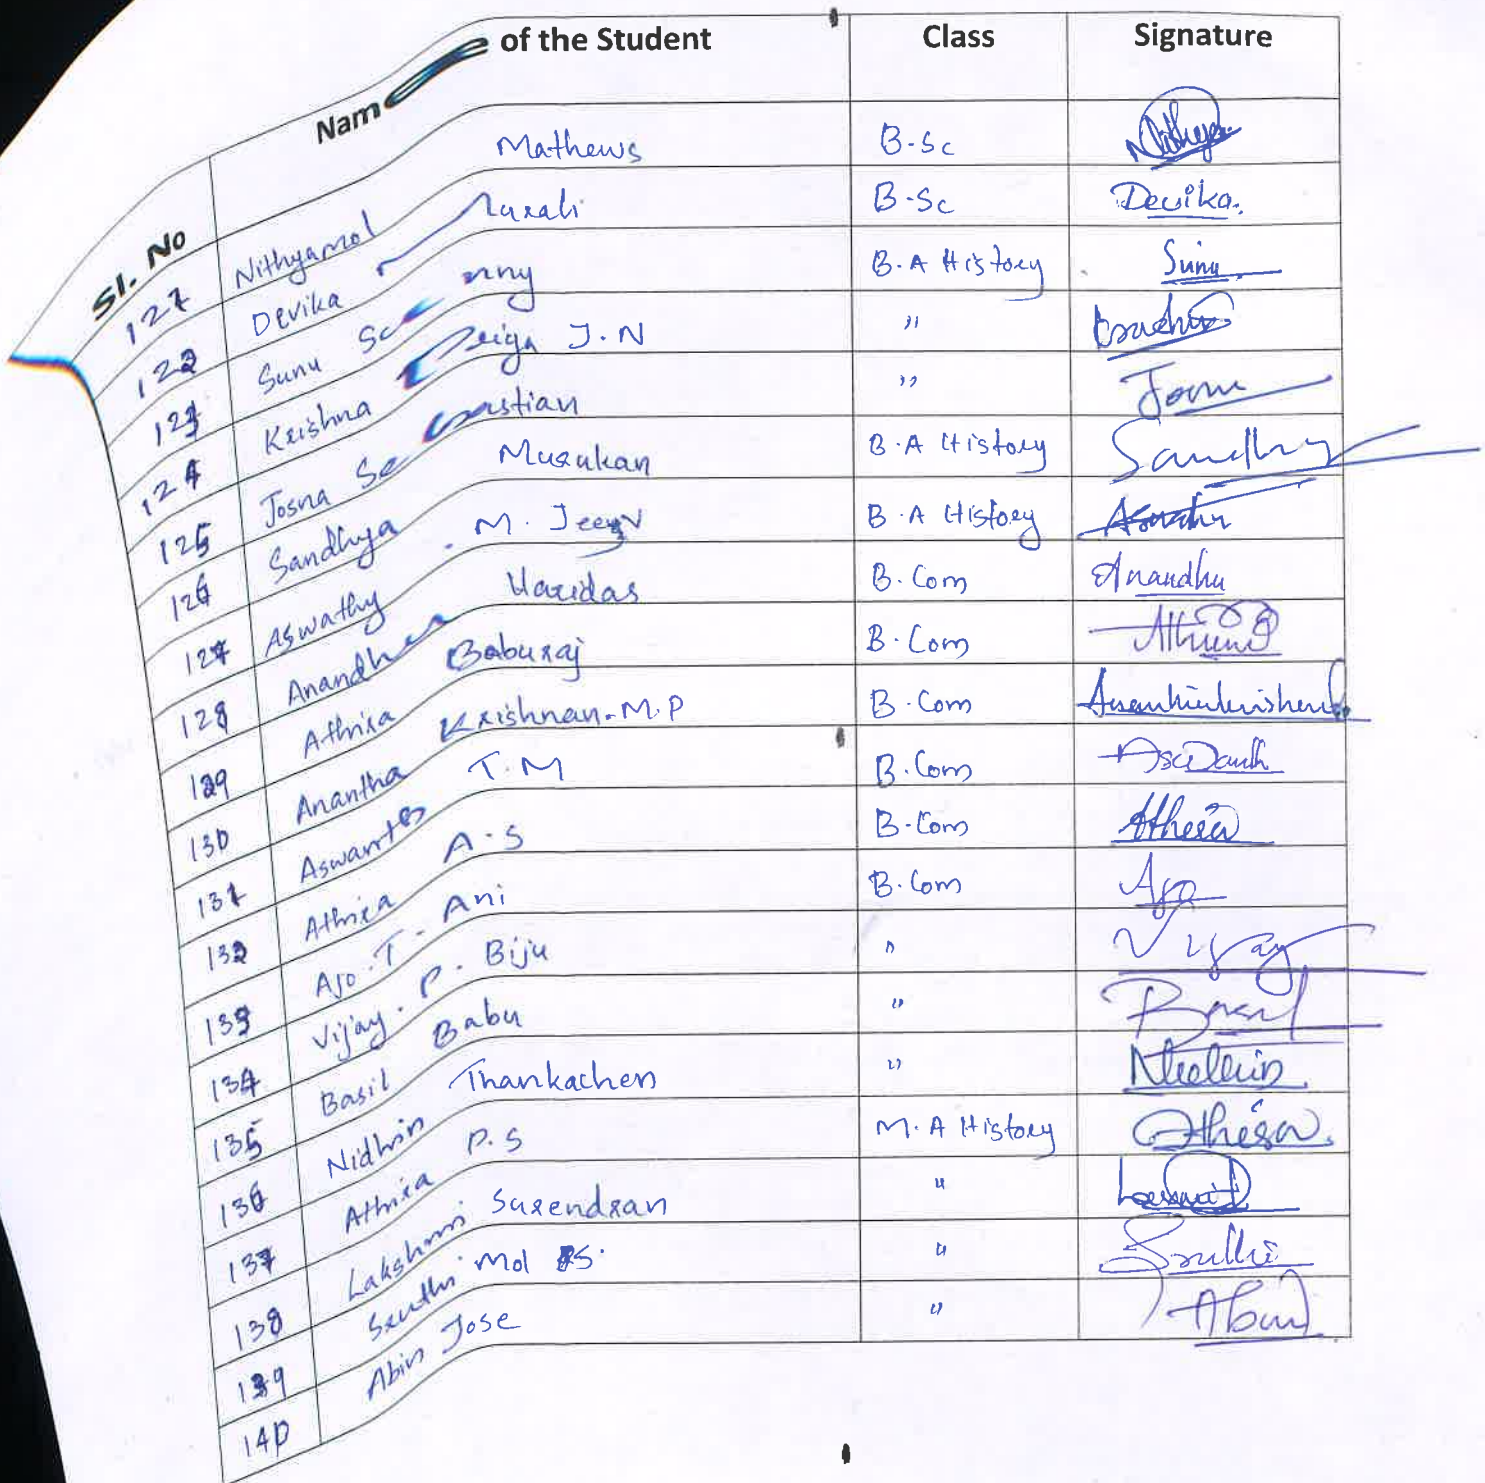 Sl. No Name of the Student Class Signature
121 Nithyamol Mathews B.Sc
122 Devika Murali B.Sc Devika.
123 Sunu B.A History Sunu
124 Krishna Priya J.N "
125 Josna Sebastian "
126 Sandhya Murukan B.A History Sandhy
127 Aswathy M. B.A History
128 Anandhu Haridas B.Com Anandhu
129 Athira Baburaj B.Com
130 Anantha Krishnan.M.P B.Com
131 T.M B.Com
132 Athira A.S B.Com
133 Ajo.T. Ani B.Com Ajo
134 Vijay. P. Biju " Vijay
135 Basil Babu " Basil
136 Nidhin Thankachen "
137 Athira P.S M.A History
138 Lakshmi Surendran "
139 Sruthi Mol "
140 Abin Jose " Abin